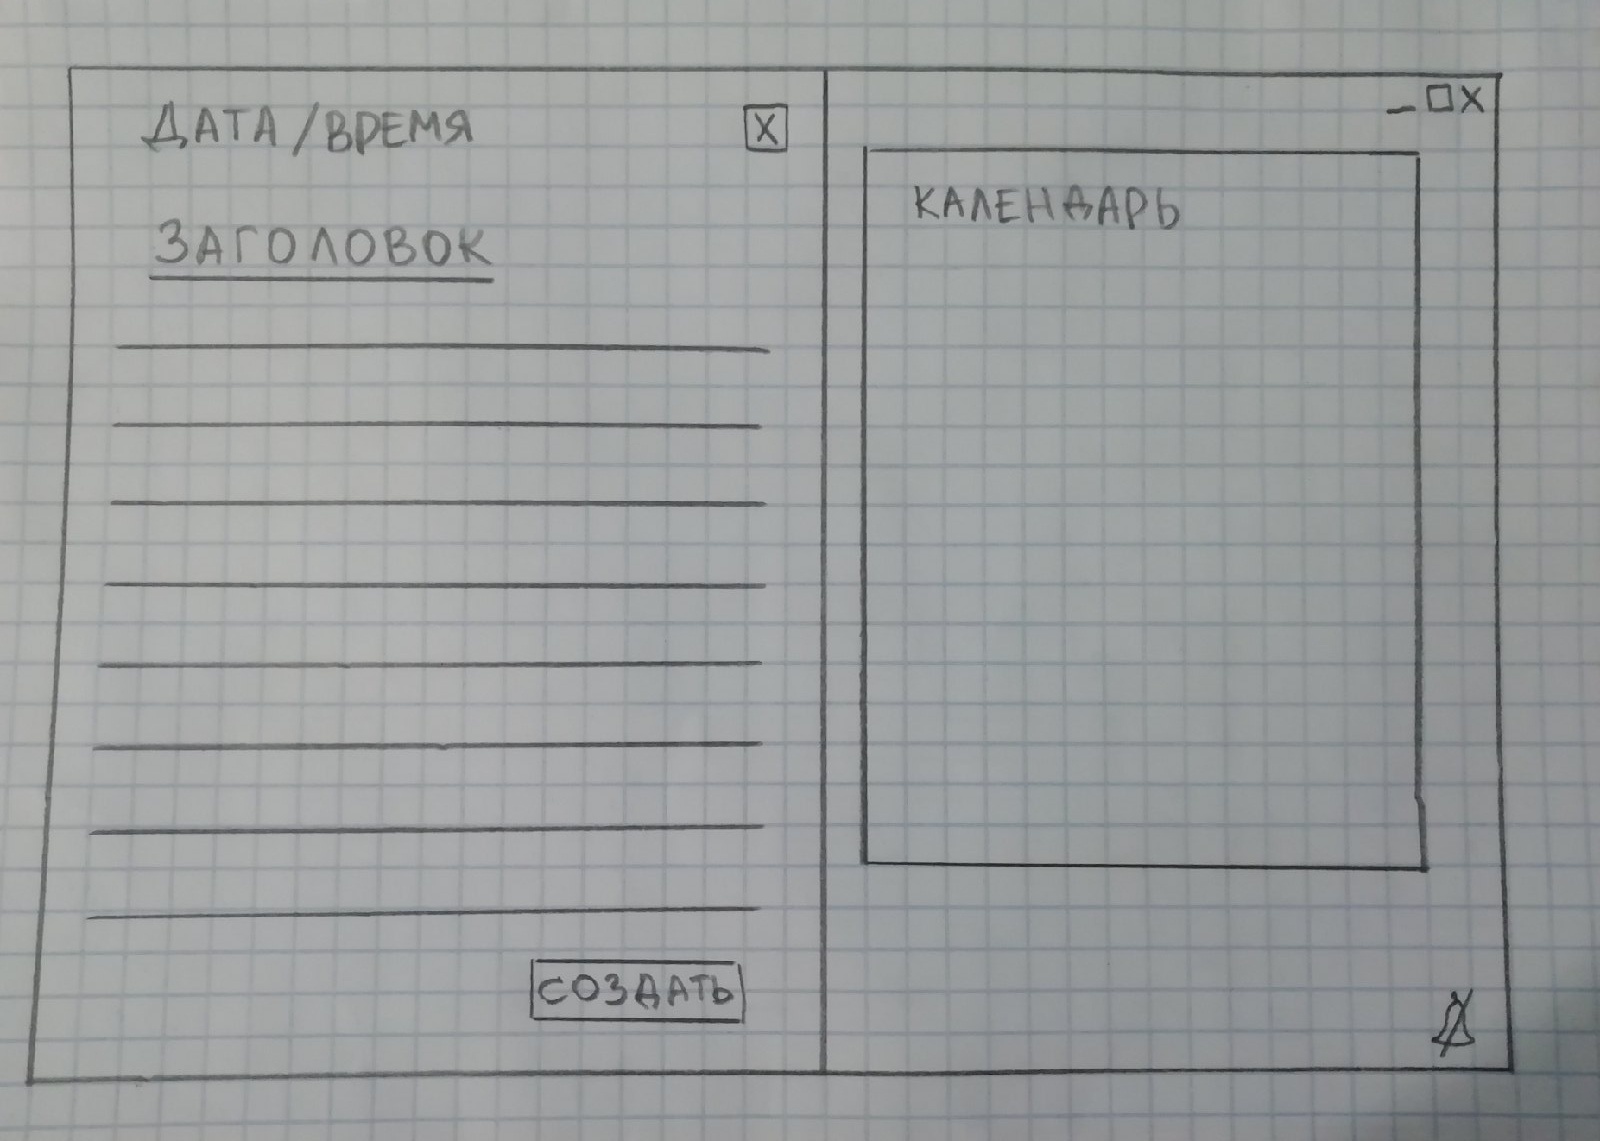 ДАТА/ВРЕМЯ
X
ЗАГОЛОВОК
СОЗДАТЬ
X
КАЛЕНДАРЬ